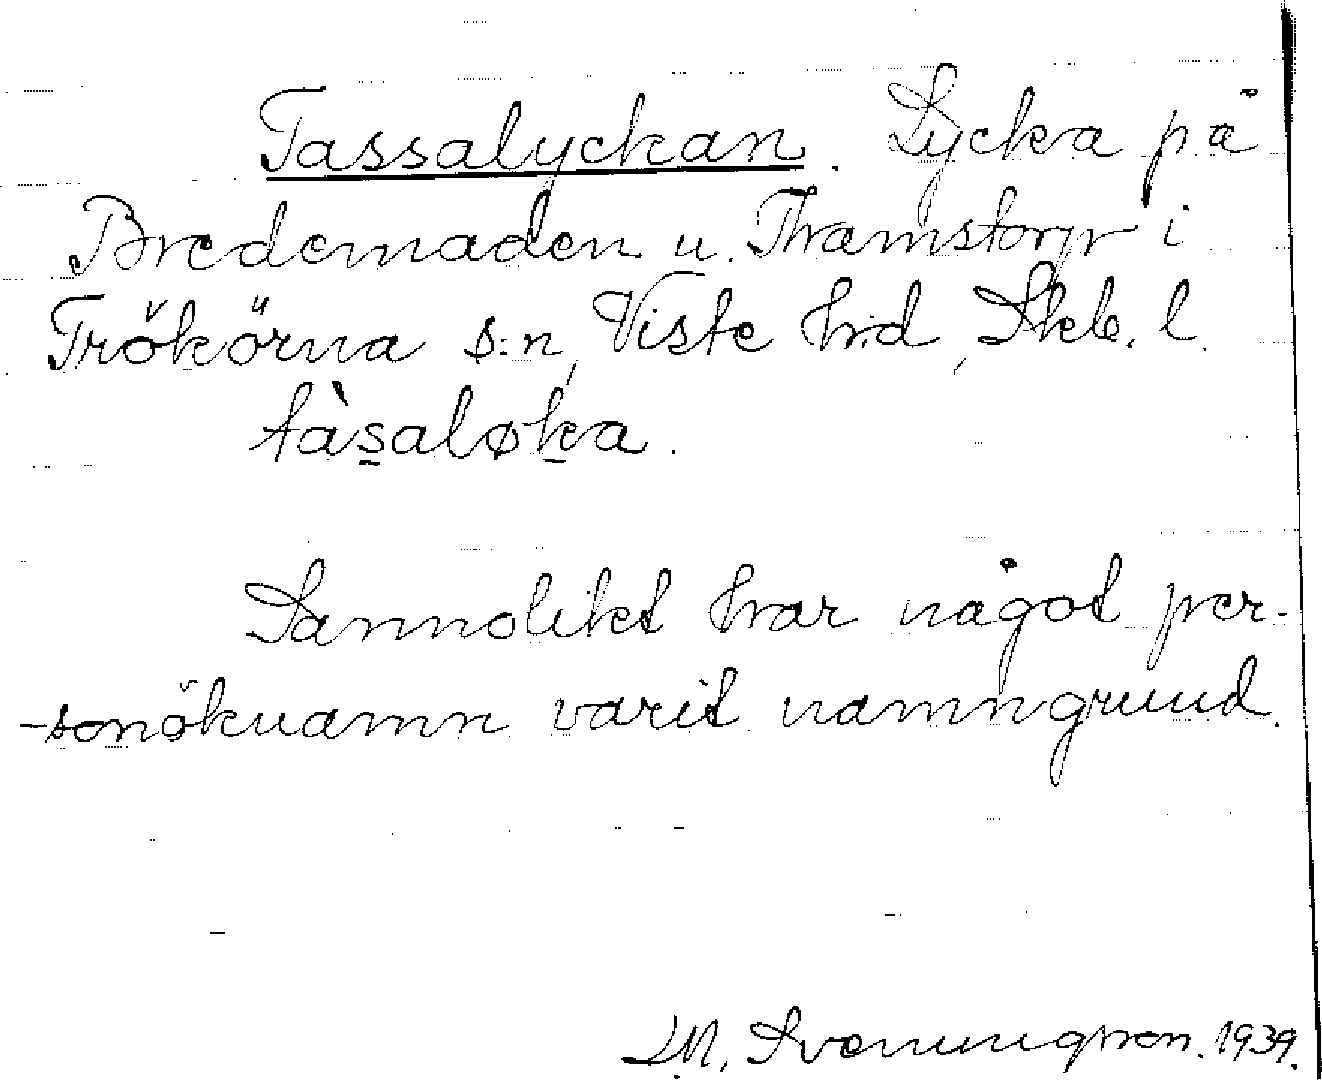 Tassalyckan. Lycka på
Bredemaden u. Thramstorp i
Trökörna s:n, Viste hd, Skb. l.
tàs̲aløk̲a.
Sannolikt har något per-
-sonöknamn varit namngrund.
S.M. Svenungsson. 1939.